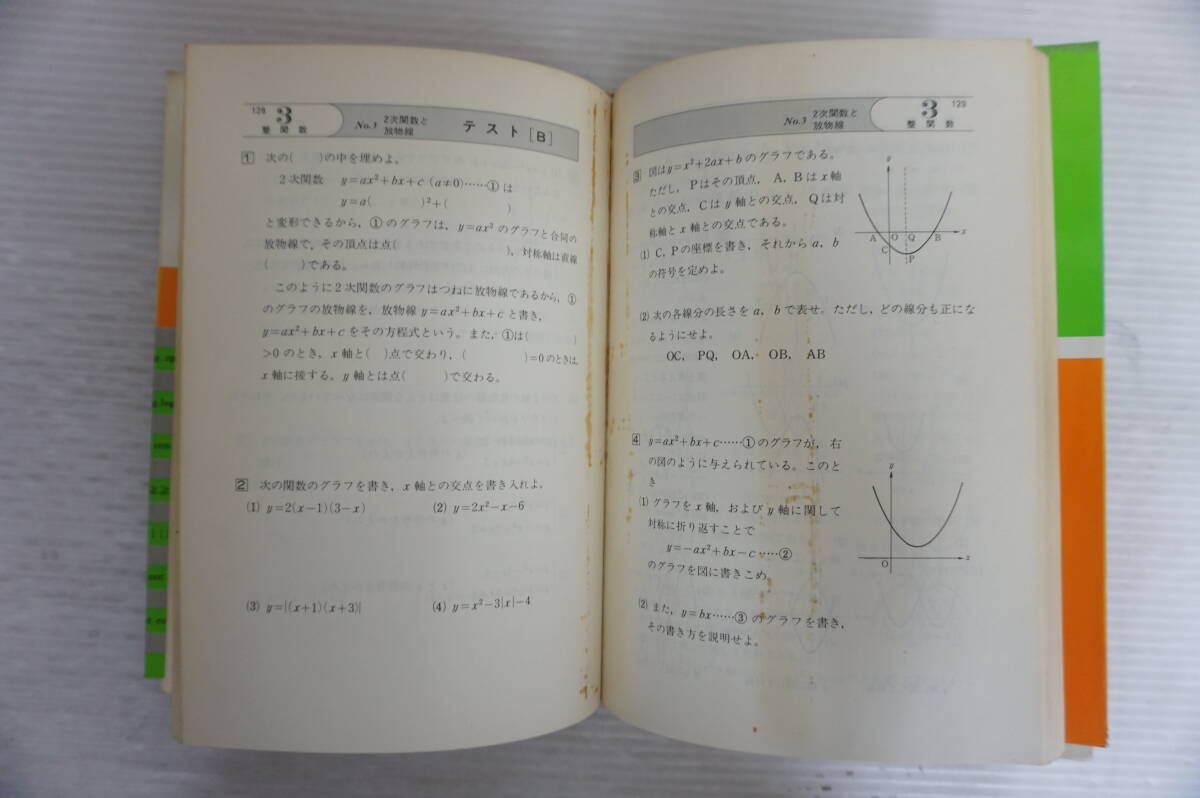 128 3
整関数
No.3 2次関数と
放物線
テスト[B]
1 次の( )の中を埋めよ。
2次関数 y=ax²+bx+c (a≠0)……①は
y=a( )²+( )
と変形できるから，①のグラフは，y=ax²のグラフと合同の
放物線で，その頂点は点( )，対称軸は直線
( )である。
このように2次関数のグラフはつねに放物線であるから，①
のグラフの放物線を，放物線y=ax²+bx+cと書き，
y=ax²+bx+cをその方程式という。また，①は( )
>0のとき，x軸と( )点で交わり，( )=0のときは，
x軸に接する。y軸とは点( )で交わる。
2 次の関数のグラフを書き，x軸との交点を書き入れよ。
(1) y=2(x−1)(3−x) (2) y=2x²−x−6
(3) y=|(x+1)(x+3)| (4) y=x²−3|x|−4
No.3 2次関数と
放物線
3 129
整関数
3 図はy=x²+2ax+bのグラフである。
ただし，Pはその頂点，A，Bはx軸
との交点，Cはy軸との交点，Qは対
称軸とx軸との交点である。
(1) C，Pの座標を書き，それからa，b
の符号を定めよ。
y
A O Q B x
C P
(2) 次の各線分の長さをa，bで表せ。ただし，どの線分も正にな
るようにせよ。
OC， PQ， OA， OB， AB
4 y=ax²+bx+c……①のグラフが，右
の図のように与えられている。このと
き
(1) グラフをx軸，およびy軸に関して
対称に折り返すことで
y=−ax²+bx−c……②
のグラフを図に書きこめ。
y
O x
(2) また，y=bx……③のグラフを書き，
その書き方を説明せよ。